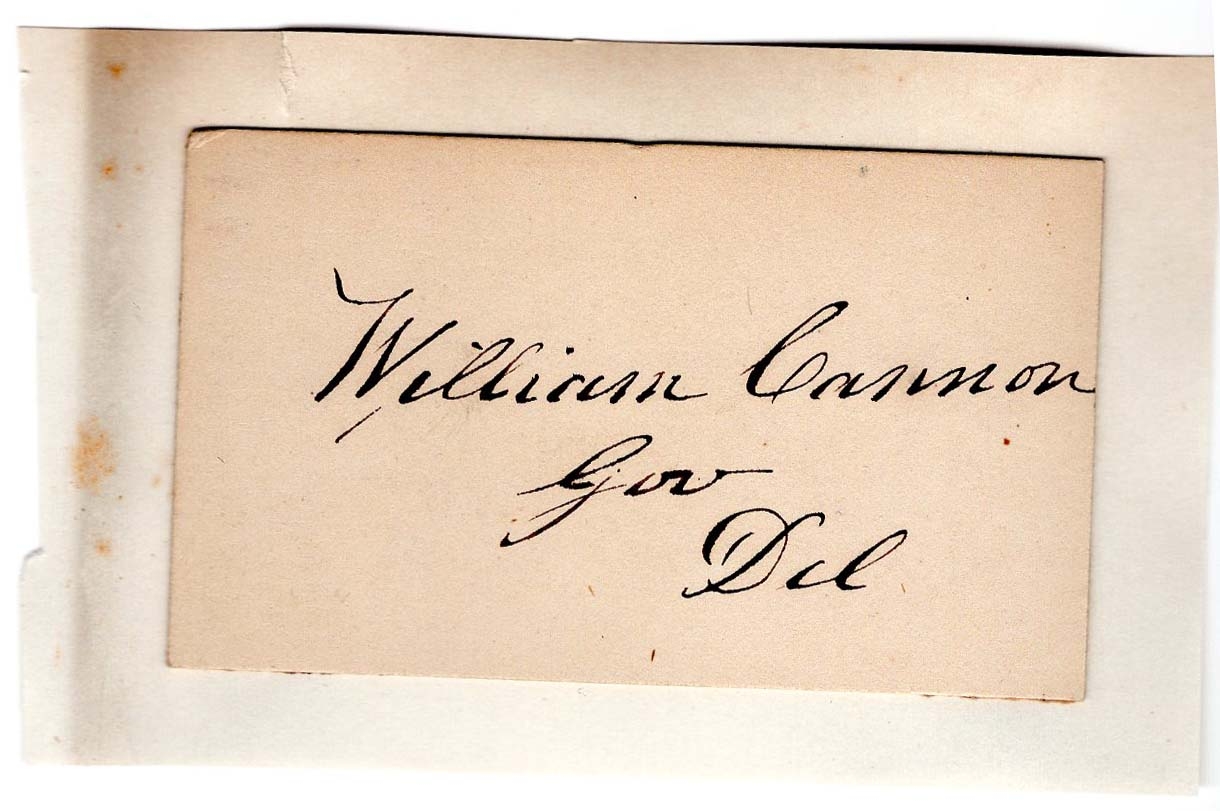 William Cannon
Gov
Del